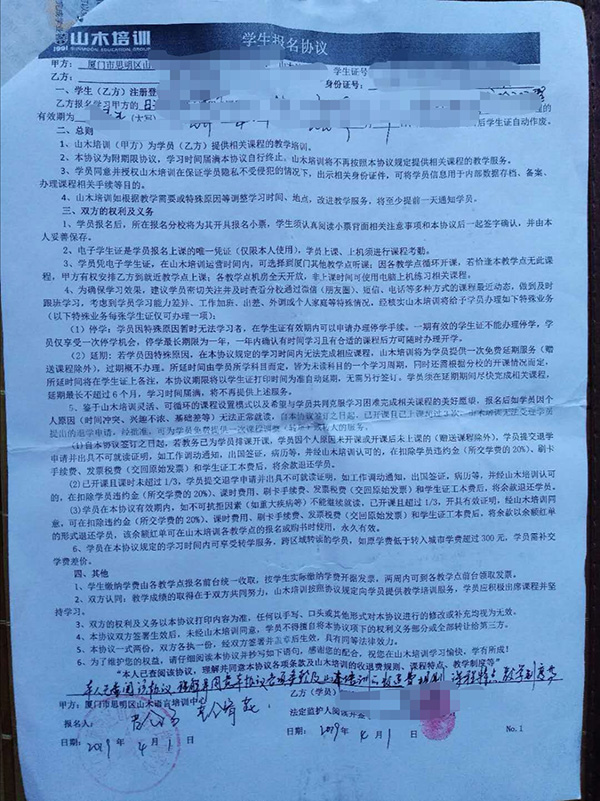 山木培训
1991 SUNMOON EDUCATION GROUP
学生报名协议
甲方：厦门市思明区山
乙方：
学生证号
身份证号：
一、学生（乙方）注册登
乙方报名学习甲方的
有效期为
后学生证自动作废。
二、总则
1、山木培训（甲方）为学员（乙方）提供相关课程的教学培训。
2、本协议为附期限协议，学习时间届满本协议自行终止。山木培训将不再按照本协议规定提供相关课程的教学服务。
3、学员同意并授权山木培训在保证学员隐私不受侵犯的情况下，出示相关身份证件，可将学员信息用于内部数据存档、备案、
办理课程相关手续等目的。
4、山木培训如根据教学需要或特殊原因等调整学习时间、地点，改进教学服务，将至少提前一天通知学员。
三、双方的权利及义务
1、学员报名后，所在报名分校将为其开具报名小票，学生须认真阅读小票背面相关注意事项和本协议后一起签字确认，并由本
人妥善保存。
2、电子学生证是学员报名上课的唯一凭证（仅限本人使用），学员上课、上机须进行课程考勤。
3、学员凭电子学生证，在山木培训运营时间内，可选择到厦门其他教学点听课；因各教学点循环开课，若恰逢本教学点无此课
程，甲方有权安排乙方到就近教学点上课；各教学点机房全天开放，非上课时间可使用电脑上机练习相关课程。
4、为确保学习效果，建议学员密切关注并及时查看分校通过微信（朋友圈）、短信、电话等多种方式的课程最近动态，做到及时
跟班学习，考虑到学员学习能力差异、工作加班、出差、外调或个人家庭等特殊情况，经核实山木培训将给予学员办理如下特殊业务
（以下特殊业务每张学生证仅可办理一项）：
（1）停学：学员因特殊原因暂时无法学习者，在学生证有效期内可以申请办理停学手续，一期有效的学生证不能办理停学，学
员仅享受一次停学机会，停学最长期限为一年，一年内确认有时间学习且有合适的课程后方可随时办理开学。
（2）延期：若学员因特殊原因，在本协议规定的学习时间内无法完成相应课程，山木培训将为学员提供一次免费延期服务（赠
送课程除外），过期概不办理。所延时间由学员所学科目而定，皆为未读科目的一个学习周期，同时还需根据分校的开课情况而定，
所延时间将在学生证上备注，本协议期限将以学生证打印时间为准自动延期，无需另行签订，学员须在延期期间尽快完成相关课程，
延期最长不超过 6 个月，学习时间届满，本协议不再延期。
5、鉴于山木培训灵活、可循环的课程设置模式以及希望与学员共同克服学习困难完成相关课程的美好愿望，报名后如学员因个
人原因（时间冲突、兴趣不浓、基础差等）无法正常就读，自本协议签订之日起，已开课且已上课超过 3 次，山木培训无法受理学员
提出的退学申请，经批准，可为学员免费提供一次课程调整（转卡）或转人的服务。
(1)自本协议签订之日起，若教务已为学员排课开课，学员因个人原因未开课或开课后未上课的（赠送课程除外），学员提交退学
申请并出具不可就读证明，如工作调动通知，出国签证，病历等，并经山木培训认可的，在扣除学员违约金（所交学费的 20%）、刷卡
手续费、发票税费（交回原始发票）和学生证工本费后，将余款退还学员。
(2)已开课且课时未超过 1/3，学员提交退学申请并出具不可就读证明，如工作调动通知，出国签证，病历等，并经山木培训认可
的，在扣除学员违约金（所交学费的 20%）、课时费用、刷卡手续费、发票税费（交回原始发票）和学生证工本费后，将余款退还学员。
(3)学员在本协议有效期内，如不可抗拒因素（如重大疾病等）不能继续就读，已开课且超过 1/3，开具有效证明，经山木培训同
意，可在扣除违约金（所交学费的 20%）、课时费用、刷卡手续费、发票税费（交回原始发票）和学生证工本费后，将余款以余额红单
的形式退还学员，该余额红单可在山木培训各教学点的报名或购书时使用，永久有效。
6、学员在本协议规定的学习时间内可享受转学服务，跨区域转读的学员，如原学费低于转入城市学费超过 300 元，学员需补交
学费差价。
四、其他
1、学生缴纳学费由各教学点报名前台统一收取，按学生实际缴纳学费开据发票，两周内可到各教学点前台领取发票。
2、双方认同：教学成绩的取得在于双方共同努力，山木培训按照协议规定向学员提供教学培训服务，学员应积极出席课程并坚
持学习。
3、双方的权利及义务以本协议打印内容为准，任何以手写、口头或其他形式对本协议进行的修改或补充均视为无效。
4、本协议双方签署生效后，未经山木培训同意，学员不得擅自将本协议项下的权利义务部分或全部转让给第三方。
5、本协议一式两份，双方各执一份，经双方签署并盖章后生效，具有同等法律效力。
6、为了维护您的权益，请仔细阅读本协议并抄写如下语句，感谢您的配合，祝您在山木培训学习愉快，学有所成！
“本人已查阅该协议，理解并同意本协议各项条款及山木培训的收退费规则、课程特点、教学制度等”
本人已查阅该协议 理解并同意本协议各项条款及山木培训 收退费规则 课程特点 教学制度等
甲方：厦门市思明区山木语言培训中心
乙方(学员)
报名人：
法定监护人阅读并签
日期：2019 年 4 月 1 日
日期：2019 年 4 月 1 日
No.1